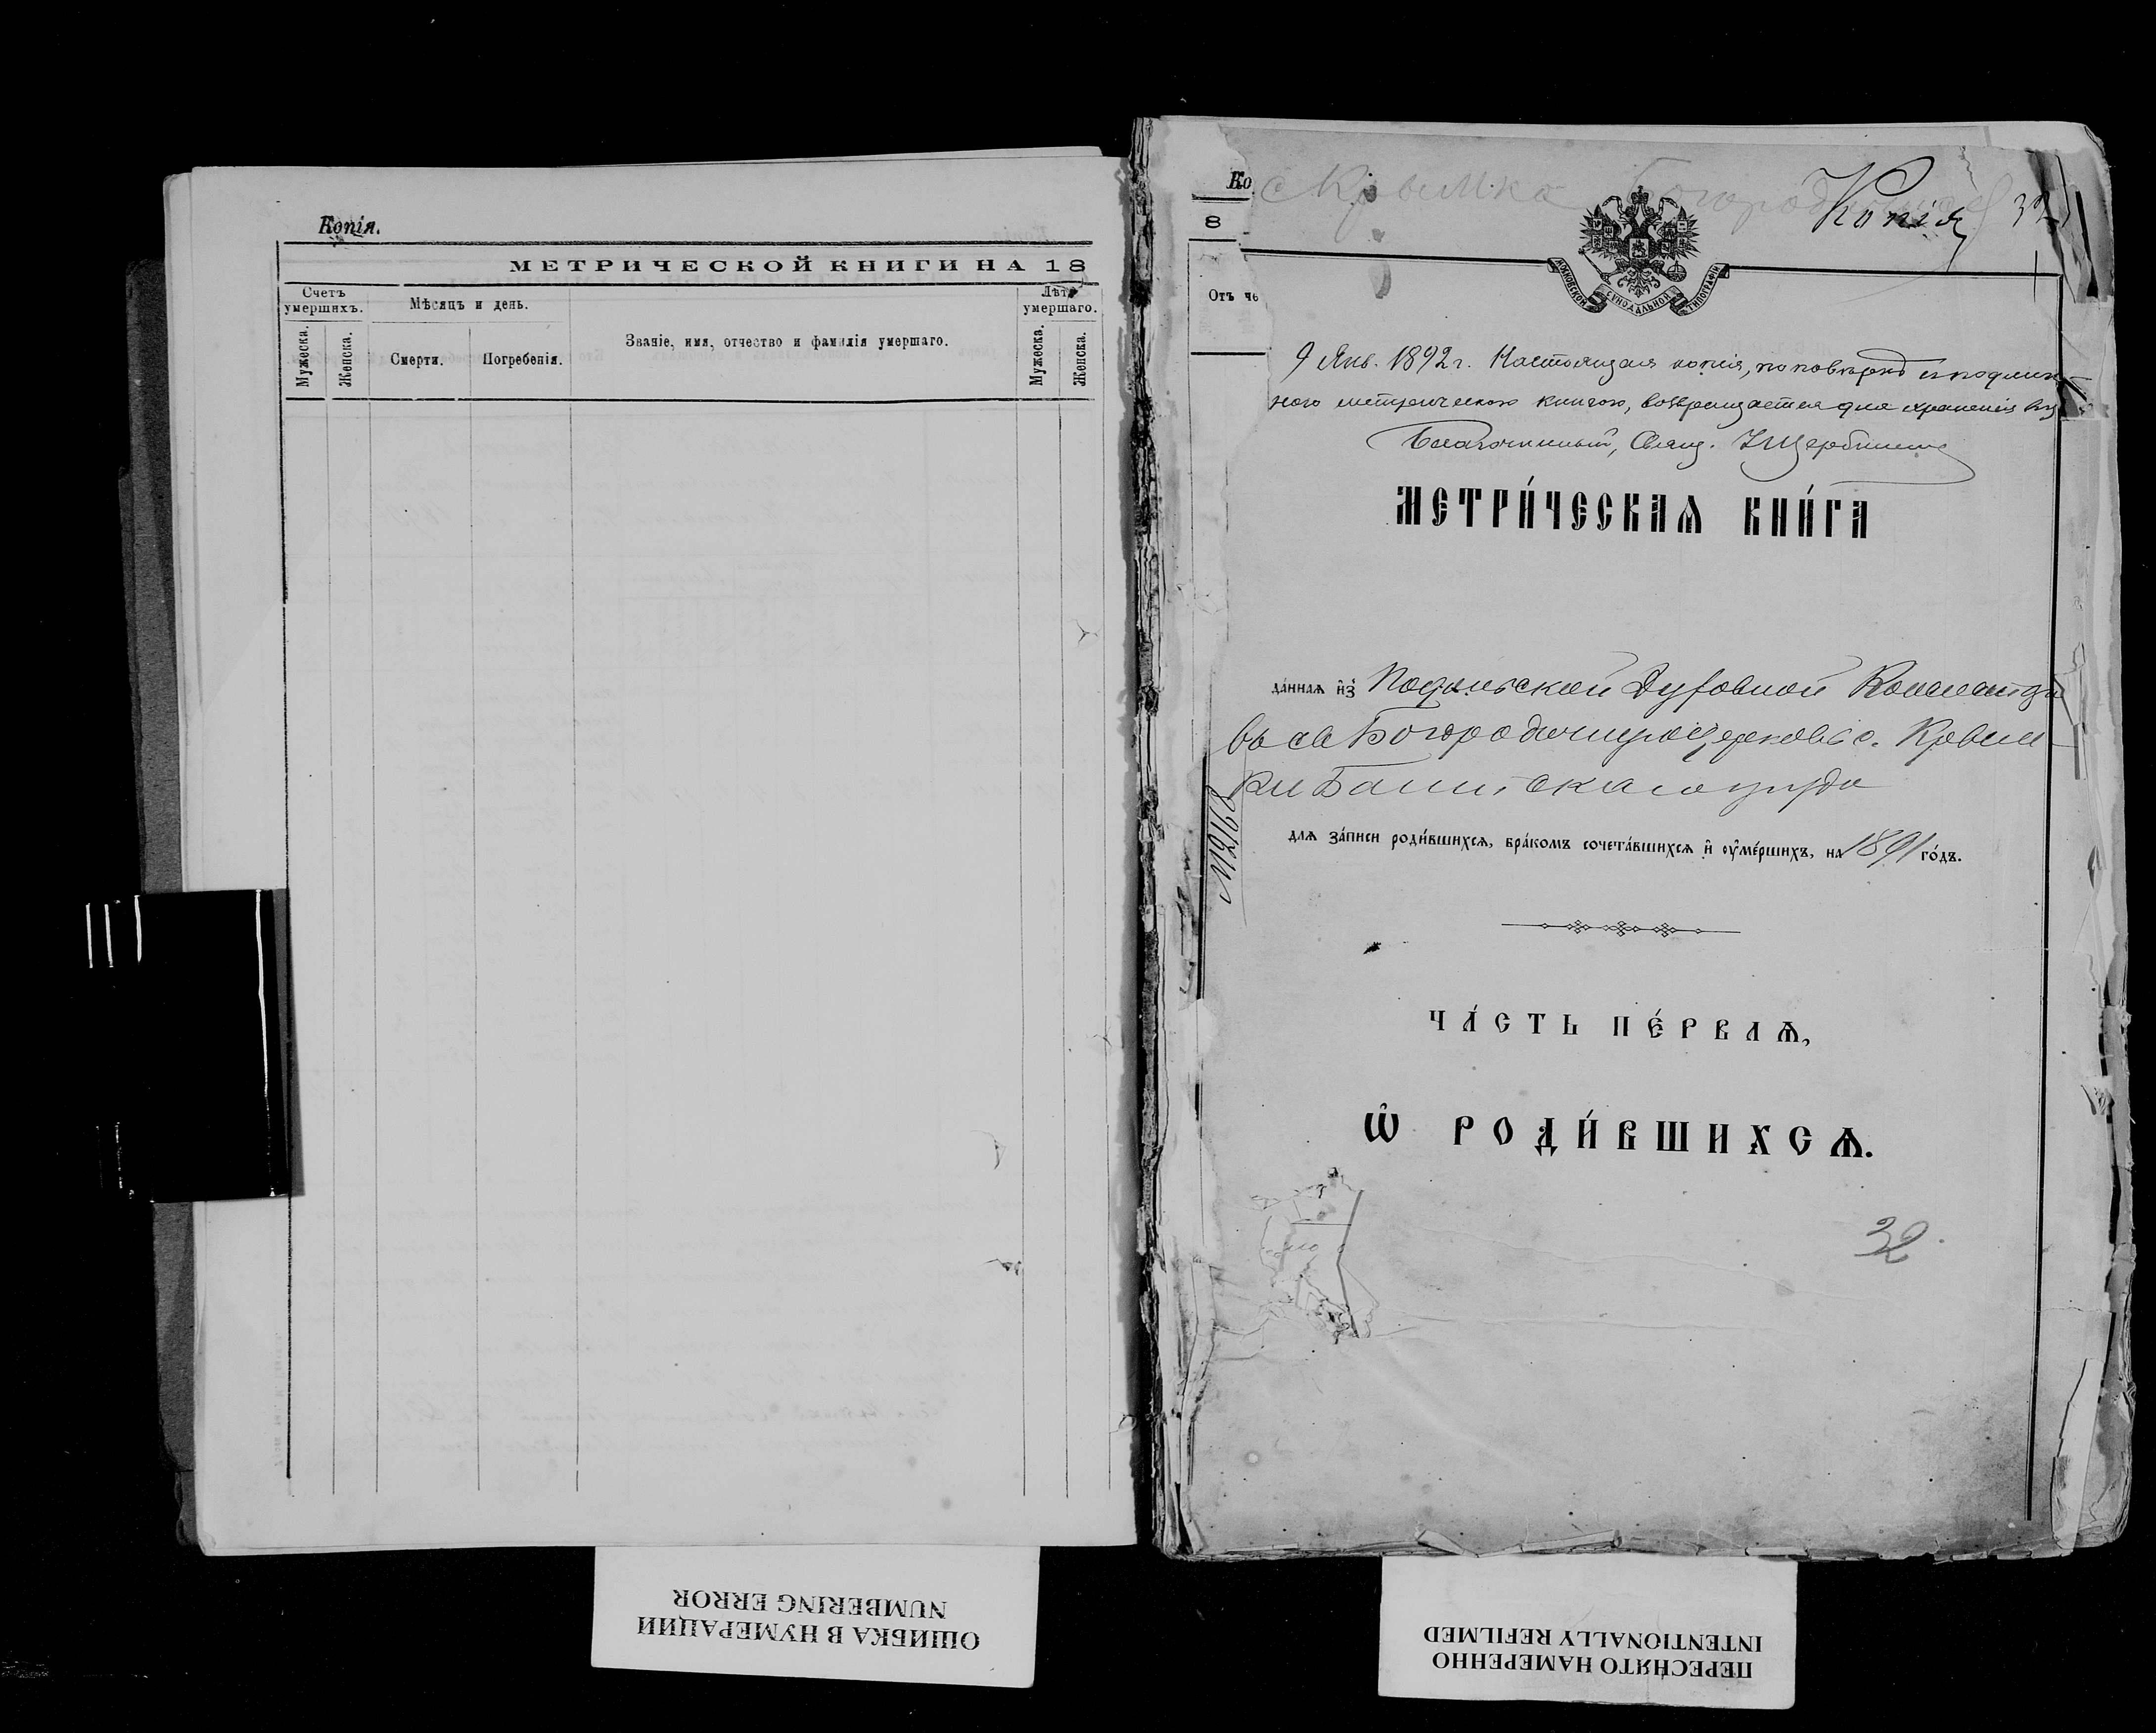 Копія.
МЕТРИЧЕСКОЙ КНИГИ НА 18
Счетъ умершихъ.
Мѣсяцъ и день.
Званіе, имя, отчество и фамилія умершаго.
Лѣта умершаго.
Мужеска.
Женска.
Смерти.
Погребенія.
Мужеска.
Женска.
Ко
8
Отъ че
с Крымка Богород
Копія
32
МОСКОВСКОЙ СѴНОДАЛЬНОЙ ТИПОГРАФІИ
9 Янв. 1892 г. Настоящая копія, по повѣркѣ с подлин-
ною метрическою книгою, возвращается для храненія въ
Благочинный, Свящ.
МЕТРИ́ЧЕСКАѦ КНИ́ГА
да́ннаѧ и҆зъ Подольской Духовной Консисторіи
въ св Богородичную церковь с. Крым-
ки Балтскаго уѣзда
№2168
длѧ за́писи роди́вшихсѧ, бра́комъ сочета́вшихсѧ и҆ ᲂу҆ме́ршихъ, на 1891 го́дъ.
ЧА́СТЬ ПЕ́РВАѦ,
Ѡ҆ РОДИ́ВШИХСѦ.
32
ОШИБКА В НУМЕРАЦИИ
NUMBERING ERROR
ПЕРЕСНЯТО НАМЕРЕННО
INTENTIONALLY REFILMED